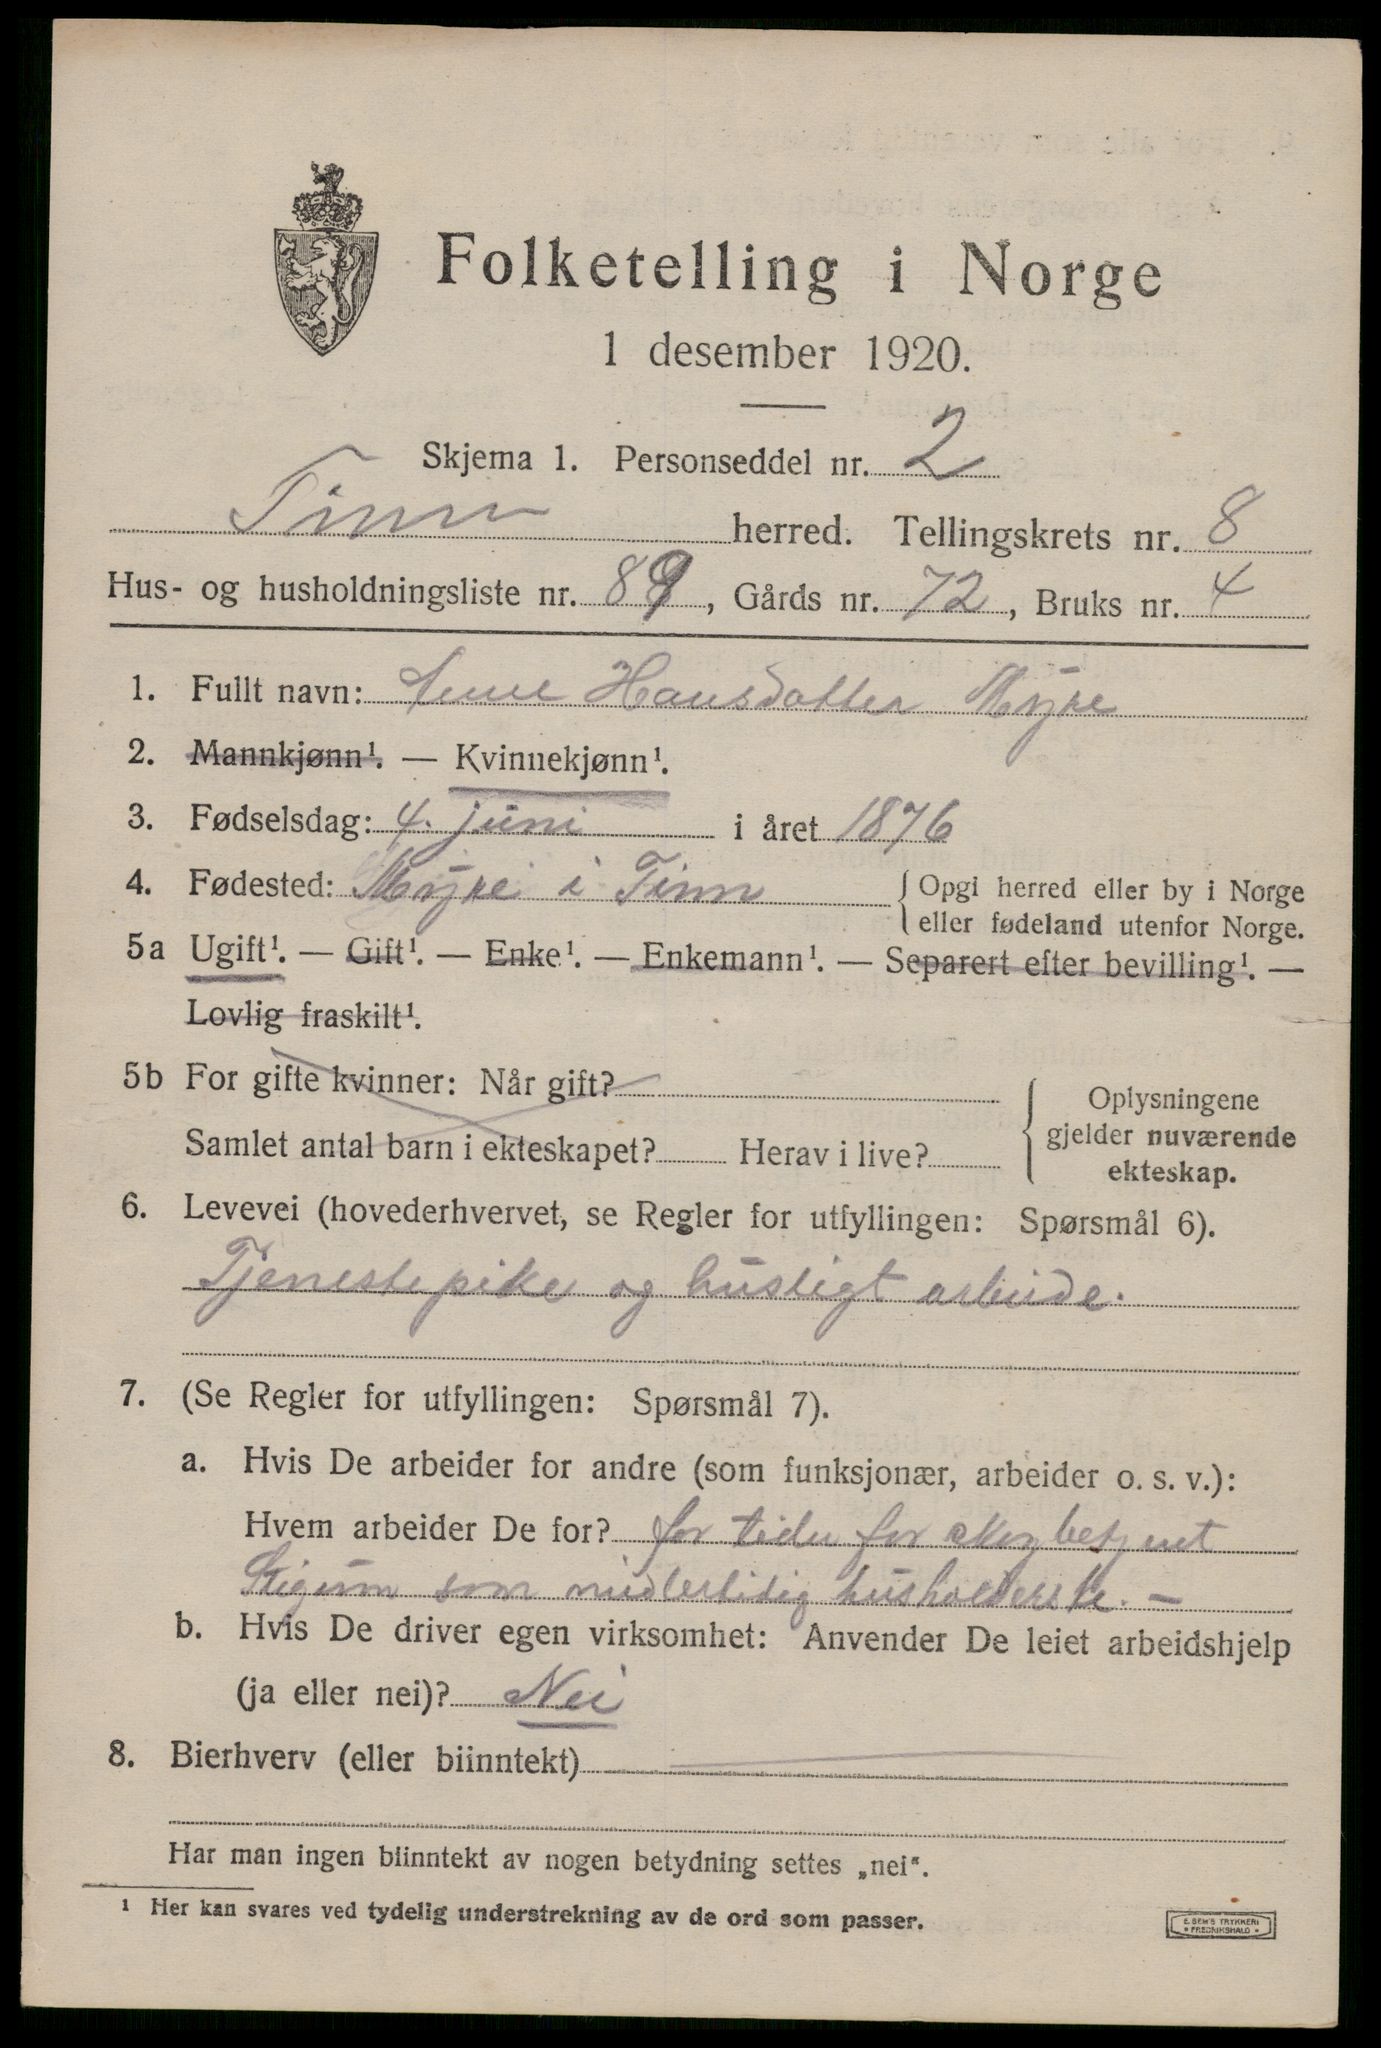 Folketelling i Norge
1 desember 1920.
Skjema 1. Personseddel nr. 2
Tinn herred. Tellingskrets nr. 8
Hus- og husholdningsliste nr. 89, Gårds nr. 72, Bruks nr. 4
1. Fullt navn: Hansdatter Myre
2. Mannkjønn¹. — Kvinnekjønn¹.
3. Fødselsdag: 4. juni i året 1876
4. Fødested: Myre i Tinn { Opgi herred eller by i Norge
eller fødeland utenfor Norge.
5a Ugift¹. — Gift¹. — Enke¹. — Enkemann¹. — Separert efter bevilling¹. —
Lovlig fraskilt¹.
5b For gifte kvinner: Når gift?
Samlet antal barn i ekteskapet? Herav i live?
Oplysningene
gjelder nuværende
ekteskap.
6. Levevei (hovederhvervet, se Regler for utfyllingen: Spørsmål 6).
Tjenestepike og husligt arbeide.
7. (Se Regler for utfyllingen: Spørsmål 7).
a. Hvis De arbeider for andre (som funksjonær, arbeider o. s. v.):
Hvem arbeider De for? for tiden for skogbetjent
som midlertidig husholderske. —
b. Hvis De driver egen virksomhet: Anvender De leiet arbeidshjelp
(ja eller nei)? Nei
8. Bierhverv (eller biinntekt)
Har man ingen biinntekt av nogen betydning settes „nei".
¹ Her kan svares ved tydelig understrekning av de ord som passer.
E. SEM'S TRYKKERI
FREDRIKSHALD